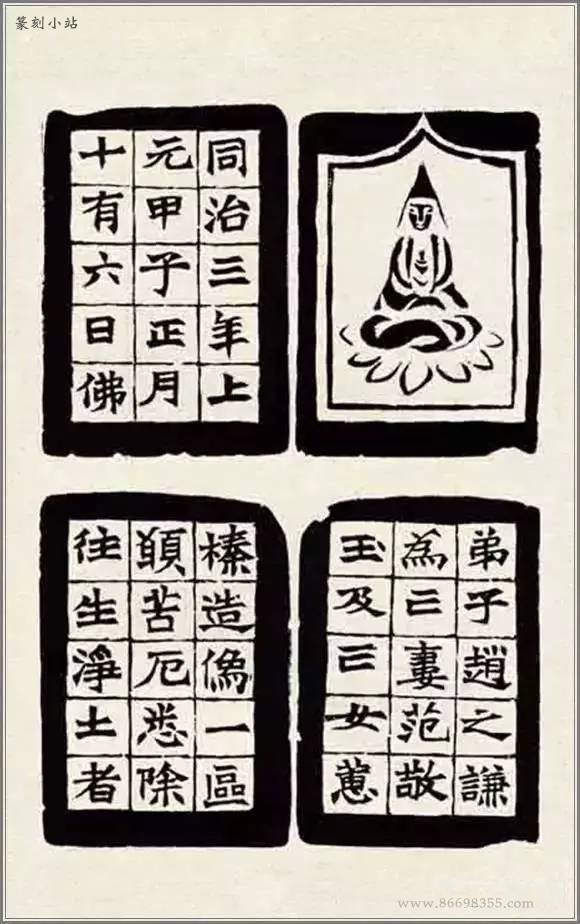 篆刻小站
同治三年上
元甲子正月
十有六日佛
弟子趙之謙
為亡妻范敬
玉及亡女蕙
榛造像一區
願苦厄悉除
往生淨土者
www.86698355.com